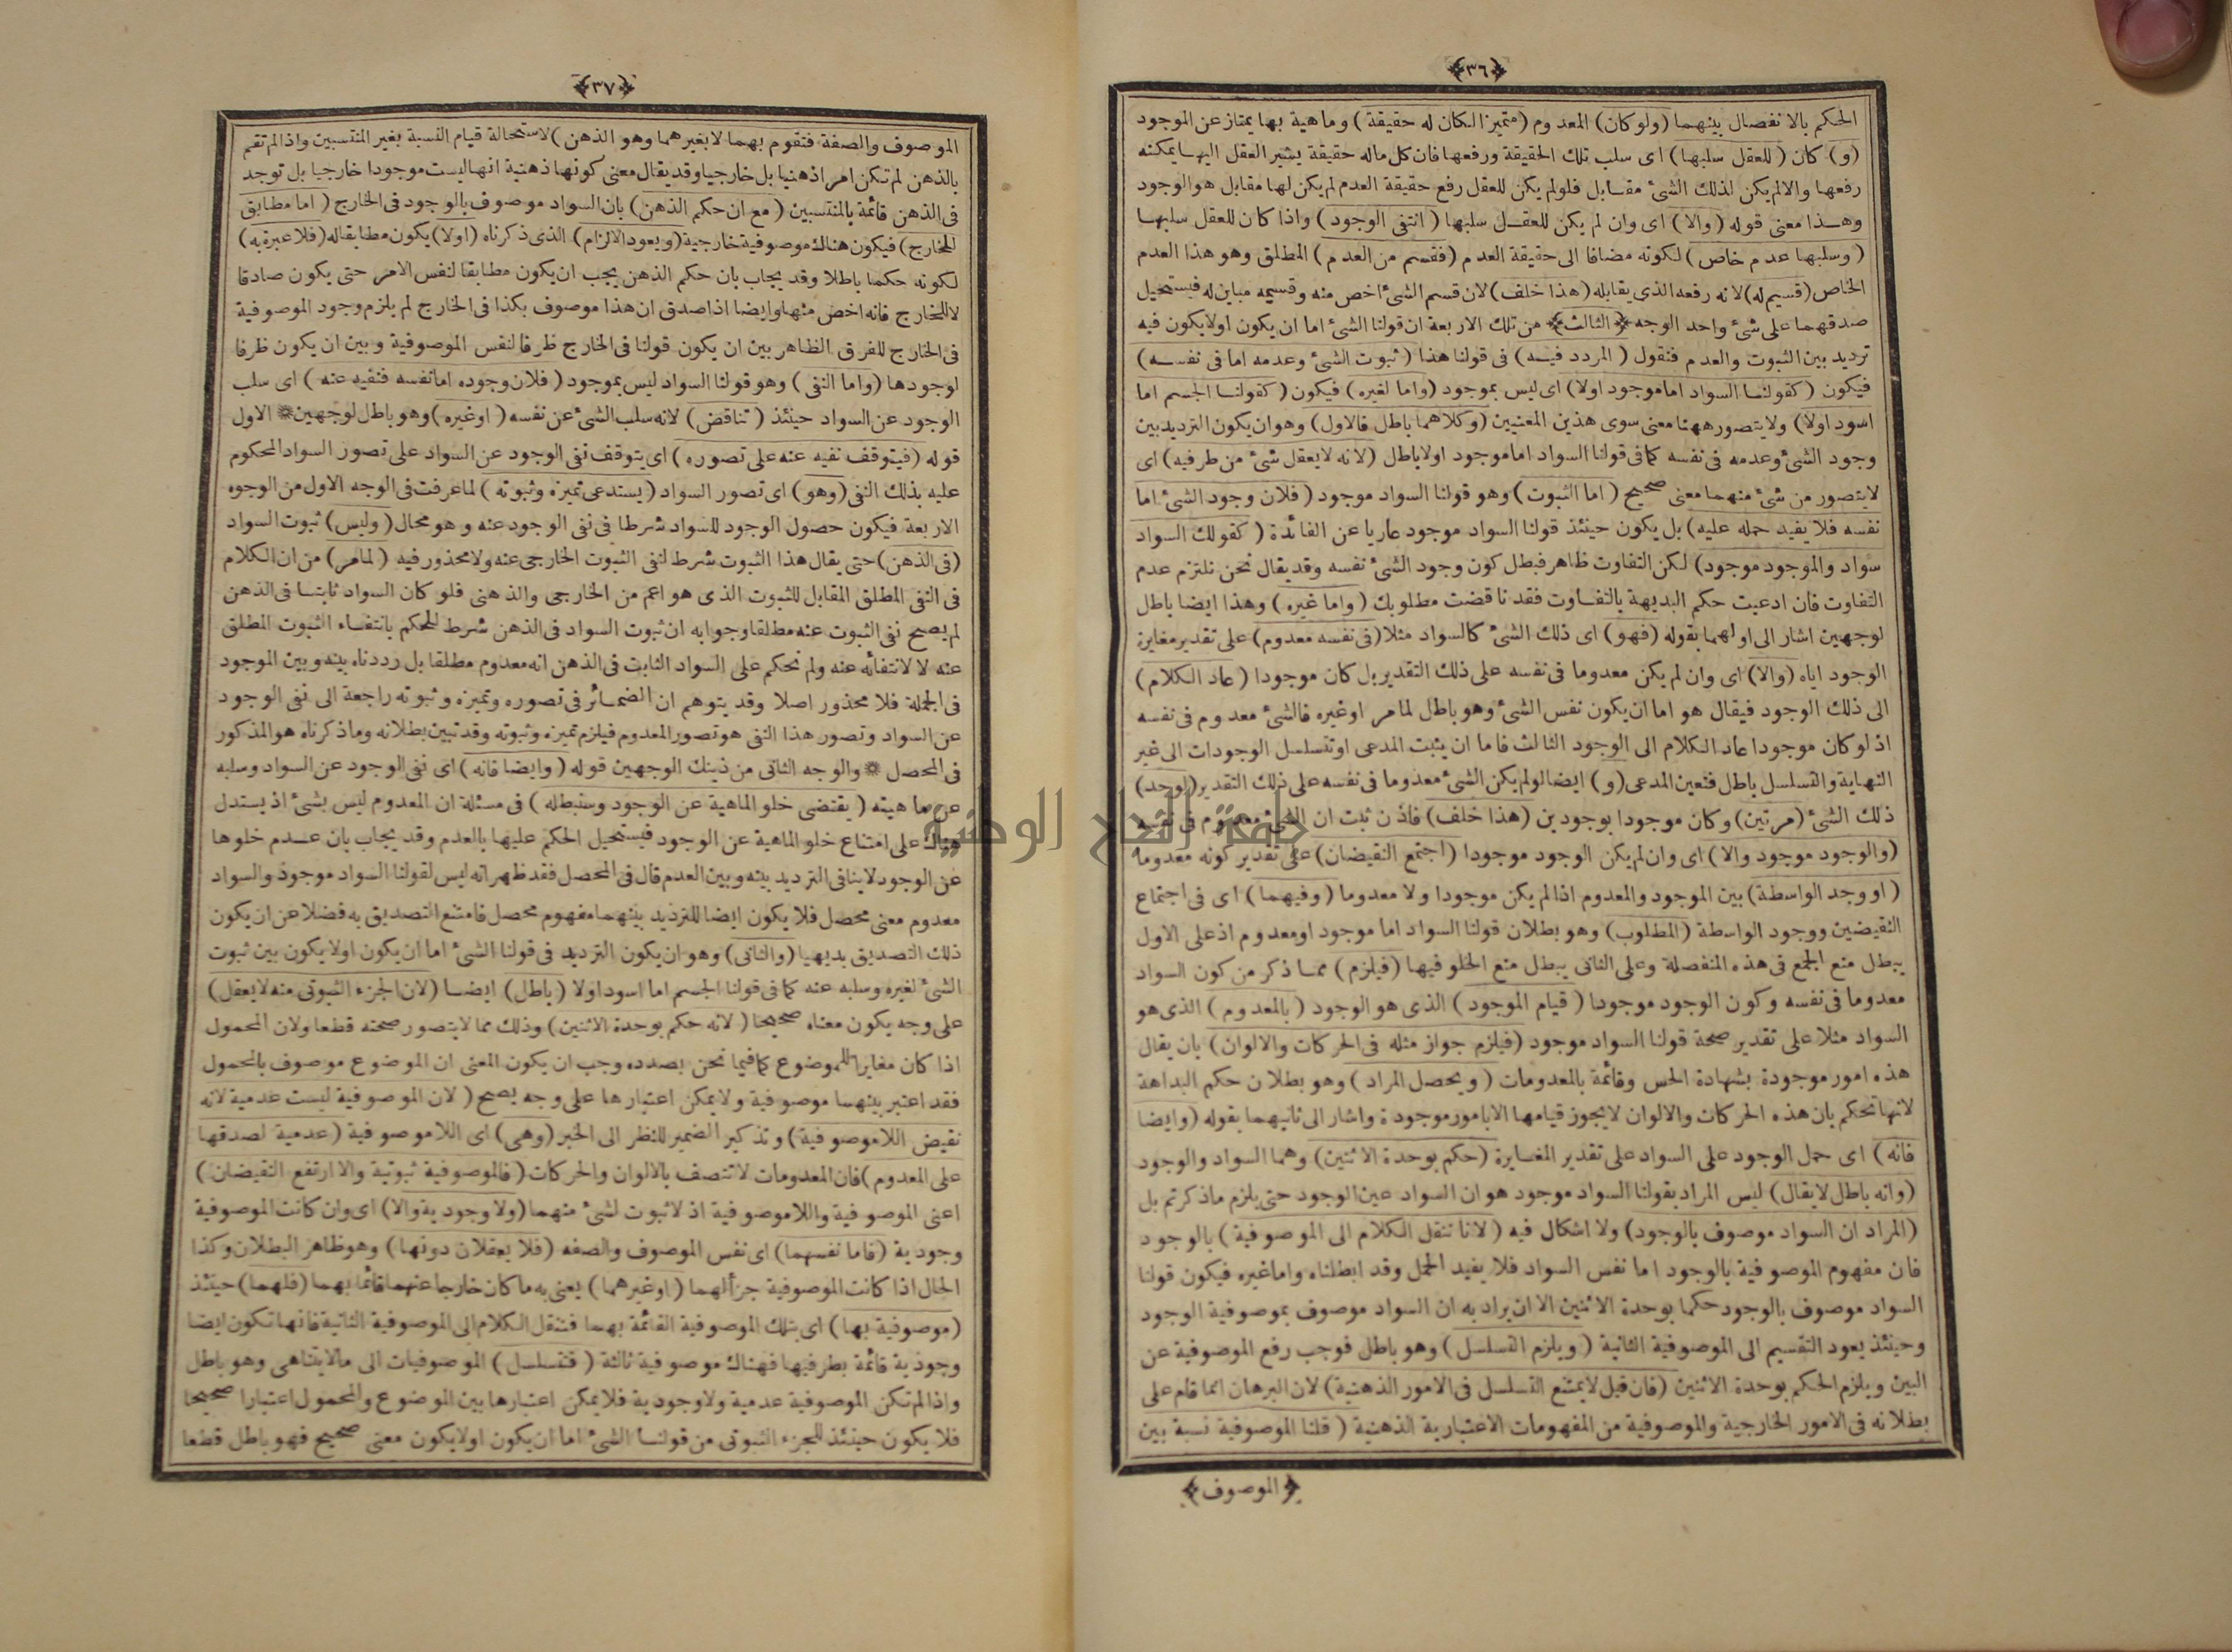 ﴿٣٦﴾
الحكم بالانفصال بينهما (ولو كان) المعدوم (متميزا لكان له حقيقة) وماهية بها يمتاز عن الموجود
(و) كان (للعقل سلبها) اى سلب تلك الحقيقة ورفعها فان كل ماله حقيقة يشير العقل اليها يمكنه
رفعها والا لم يكن لذلك الشئ مقابل فلو لم يكن للعقل رفع حقيقة العدم لم يكن لها مقابل هو الوجود
وهذا معنى قوله (والا) اى وان لم يكن للعقل سلبها (انتفى الوجود) واذا كان للعقل سلبها
(وسلبها عدم خاص) لكونه مضافا الى حقيقة العدم (فقسم من العدم) المطلق وهو هذا العدم
الخاص (قسيم له) لانه رفعه الذى يقابله (هذا خلف) لان قسم الشئ اخص منه وقسيمه مباين له فيستحيل
صدقهما على شئ واحد الوجه ﴿الثالث﴾ من تلك الاربعة ان قولنا الشئ اما ان يكون او لا يكون فيه
ترديد بين الثبوت والعدم فنقول (المردد فيه) فى قولنا هذا (ثبوت الشئ وعدمه اما فى نفسه)
فيكون (كقولنا السواد اما موجود اولا) اى ليس بموجود (واما لغيره) فيكون (كقولنا الجسم اما
اسود اولا) ولا يتصور ههنا معنى سوى هذين المعنيين (وكلاهما باطل فالاول) وهو ان يكون الترديد بين
وجود الشئ وعدمه فى نفسه كما فى قولنا السواد اما موجود اولا باطل (لانه لا يعقل شئ من طرفيه) اى
لا يتصور من شئ منهما معنى صحيح (اما الثبوت) وهو قولنا السواد موجود (فلان وجود الشئ اما
نفسه فلا يفيد حمله عليه) بل يكون حينئذ قولنا السواد موجود عاريا عن الفائدة (كقولك السواد
سواد والموجود موجود) لكن التفاوت ظاهر فبطل كون وجود الشئ نفسه وقد يقال نحن نلتزم عدم
التفاوت فان ادعيت حكم البديهة بالتفاوت فقد ناقضت مطلوبك (واما غيره) وهذا ايضا باطل
لوجهين اشار الى اولهما بقوله (فهو) اى ذلك الشئ كالسواد مثلا (فى نفسه معدوم) على تقدير مغايرة
الوجود اياه (والا) اى وان لم يكن معدوما فى نفسه على ذلك التقدير بل كان موجودا (عاد الكلام)
الى ذلك الوجود فيقال هو اما ان يكون نفس الشئ وهو باطل لما مر او غيره فالشئ معدوم فى نفسه
اذ لو كان موجودا عاد الكلام الى الوجود الثالث فاما ان يثبت المدعى او تتسلسل الوجودات الى غير
النهاية والتسلسل باطل فتعين المدعى (و) ايضا لو لم يكن الشئ معدوما فى نفسه على ذلك التقدير (لوجد)
ذلك الشئ (مرتين) وكان موجودا بوجودين (هذا خلف) فاذن ثبت ان الشئ معدوم فى نفسه
(والوجود موجود والا) اى وان لم يكن الوجود موجودا (اجتمع النقيضان) على تقدير كونه معدوما
(او وجد الواسطة) بين الموجود والمعدوم اذا لم يكن موجودا ولا معدوما (وفيهما) اى فى اجتماع
النقيضين ووجود الواسطة (المطلوب) وهو بطلان قولنا السواد اما موجود او معدوم اذ على الاول
يبطل منع الجمع فى هذه المنفصلة وعلى الثانى يبطل منع الخلو فيها (فيلزم) مما ذكر من كون السواد
معدوما فى نفسه وكون الوجود موجودا (قيام الموجود) الذى هو الوجود (بالمعدوم) الذى هو
السواد مثلا على تقدير صحة قولنا السواد موجود (فيلزم جواز مثله فى الحركات والالوان) بان يقال
هذه امور موجودة بشهادة الحس وقائمة بالمعدومات (ويحصل المراد) وهو بطلان حكم البداهة
لانها تحكم بان هذه الحركات والالوان لا يجوز قيامها الا بامور موجودة واشار الى ثانيهما بقوله (وايضا
فانه) اى حمل الوجود على السواد على تقدير المغايرة (حكم بوحدة الاثنين) وهما السواد والوجود
(وانه باطل لا يقال) ليس المراد بقولنا السواد موجود هو ان السواد عين الوجود حتى يلزم ما ذكرتم بل
(المراد ان السواد موصوف بالوجود) ولا اشكال فيه (لانا ننقل الكلام الى الموصوفية) بالوجود
فان مفهوم الموصوفية بالوجود اما نفس السواد فلا يفيد الحمل وقد ابطلناه واما غيره فيكون قولنا
السواد موصوف بالوجود حكما بوحدة الاثنين الا ان يراد به ان السواد موصوف بموصوفية الوجود
وحينئذ يعود التقسيم الى الموصوفية الثانية (ويلزم التسلسل) وهو باطل فوجب رفع الموصوفية عن
البين ويلزم الحكم بوحدة الاثنين (فان قيل لا يمتنع التسلسل فى الامور الذهنية) لان البرهان انما قام على
بطلانه فى الامور الخارجية والموصوفية من المفهومات الاعتبارية الذهنية (قلنا الموصوفية نسبة بين
﴿الموصوف﴾
﴿٣٧﴾
الموصوف والصفة فتقوم بهما لا بغيرهما وهو الذهن) لاستحالة قيام النسبة بغير المنتسبين واذا لم تقم
بالذهن لم تكن امرا ذهنيا بل خارجيا وقد يقال معنى كونها ذهنية انها ليست موجودا خارجيا بل توجد
فى الذهن قائمة بالمنتسبين (مع ان حكم الذهن) بان السواد موصوف بالوجود فى الخارج (اما مطابق
للخارج) فيكون هناك موصوفية خارجية (ويعود الالزام) الذى ذكرناه (اولا) يكون مطابقا له (فلا عبرة به)
لكونه حكما باطلا وقد يجاب بان حكم الذهن يجب ان يكون مطابقا لنفس الامر حتى يكون صادقا
لا للخارج فانه اخص منها وايضا اذا صدق ان هذا موصوف بكذا فى الخارج لم يلزم وجود الموصوفية
فى الخارج للفرق الظاهر بين ان يكون قولنا فى الخارج ظرفا لنفس الموصوفية وبين ان يكون ظرفا
لوجودها (واما النفى) وهو قولنا السواد ليس بموجود (فلان وجوده اما نفسه فنفيه عنه) اى سلب
الوجود عن السواد حينئذ (تناقض) لانه سلب الشئ عن نفسه (او غيره) وهو باطل لوجهين * الاول
قوله (فيتوقف نفيه عنه على تصوره) اى يتوقف نفى الوجود عن السواد على تصور السواد المحكوم
عليه بذلك النفى (وهو) اى تصور السواد (يستدعى تميزه وثبوته) لما عرفت فى الوجه الاول من الوجوه
الاربعة فيكون حصول الوجود للسواد شرطا فى نفى الوجود عنه وهو محال (وليس) ثبوت السواد
(فى الذهن) حتى يقال هذا الثبوت شرط لنفى الثبوت الخارجى عنه ولا محذور فيه (لما مر) من ان الكلام
فى النفى المطلق المقابل للثبوت الذى هو اعم من الخارجى والذهنى فلو كان السواد ثابتا فى الذهن
لم يصح نفى الثبوت عنه مطلقا وجوابه ان ثبوت السواد فى الذهن شرط للحكم بانتفاء الثبوت المطلق
عنه لا لانتفائه عنه ولم نحكم على السواد الثابت فى الذهن انه معدوم مطلقا بل رددناه بينه وبين الموجود
فى الجملة فلا محذور اصلا وقد يتوهم ان الضمائر فى تصوره وتميزه وثبوته راجعة الى نفى الوجود
عن السواد وتصور هذا النفى هو تصور المعدوم فيلزم تميزه وثبوته وقد تبين بطلانه وما ذكرناه هو المذكور
فى المحصل * والوجه الثانى من ذينك الوجهين قوله (وايضا فانه) اى نفى الوجود عن السواد وسلبه
عن ماهيته (يقتضى خلو الماهية عن الوجود وسنبطله) فى مسئلة ان المعدوم ليس بشئ اذ يستدل
هناك على امتناع خلو الماهية عن الوجود فيستحيل الحكم عليها بالعدم وقد يجاب بان عدم خلوها
عن الوجود لا ينافى الترديد بينه وبين العدم قال فى المحصل فقد ظهر انه ليس لقولنا السواد موجود والسواد
معدوم معنى محصل فلا يكون ايضا للترديد بينهما مفهوم محصل فامتنع التصديق به فضلا عن ان يكون
ذلك التصديق بديهيا (والثانى) وهو ان يكون الترديد فى قولنا الشئ اما ان يكون او لا يكون بين ثبوت
الشئ لغيره وسلبه عنه كما فى قولنا الجسم اما اسود اولا (باطل) ايضا (لان الجزء الثبوتى منه لا يعقل)
على وجه يكون معناه صحيحا (لانه حكم بوحدة الاثنين) وذلك مما لا يتصور صحته قطعا ولان المحمول
اذا كان مغايرا للموضوع كما فيما نحن بصدده وجب ان يكون المعنى ان الموضوع موصوف بالمحمول
فقد اعتبر بينهما موصوفية ولا يمكن اعتبارها على وجه يصح (لان الموصوفية ليست عدمية لانه
نقيض اللاموصوفية) وتذكير الضمير للنظر الى الخبر (وهى) اى اللاموصوفية (عدمية لصدقها
على المعدوم) فان المعدومات لا تتصف بالالوان والحركات (فالموصوفية ثبوتية والا ارتفع النقيضان)
اعنى الموصوفية واللاموصوفية اذ لا ثبوت لشئ منهما (ولا وجودية والا) اى وان كانت الموصوفية
وجودية (فاما نفسهما) اى نفس الموصوف والصفه (فلا يعقلان دونها) وهو ظاهر البطلان وكذا
الحال اذا كانت الموصوفية جزأ لهما (او غيرهما) يعنى به ما كان خارجا عنهما قائما بهما (فلهما) حينئذ
(موصوفية بها) اى بتلك الموصوفية القائمة بهما فننقل الكلام الى الموصوفية الثانية فانها تكون ايضا
وجودية قائمة بطرفيها فهناك موصوفية ثالثة (فتتسلسل) الموصوفيات الى مالا يتناهى وهو باطل
واذا لم تكن الموصوفية عدمية ولا وجودية فلا يمكن اعتبارها بين الموضوع والمحمول اعتبارا صحيحا
فلا يكون حينئذ للجزء الثبوتى من قولنا الشئ اما ان يكون او لا يكون معنى صحيح فهو باطل قطعا
جامعة النجاح الوطنية